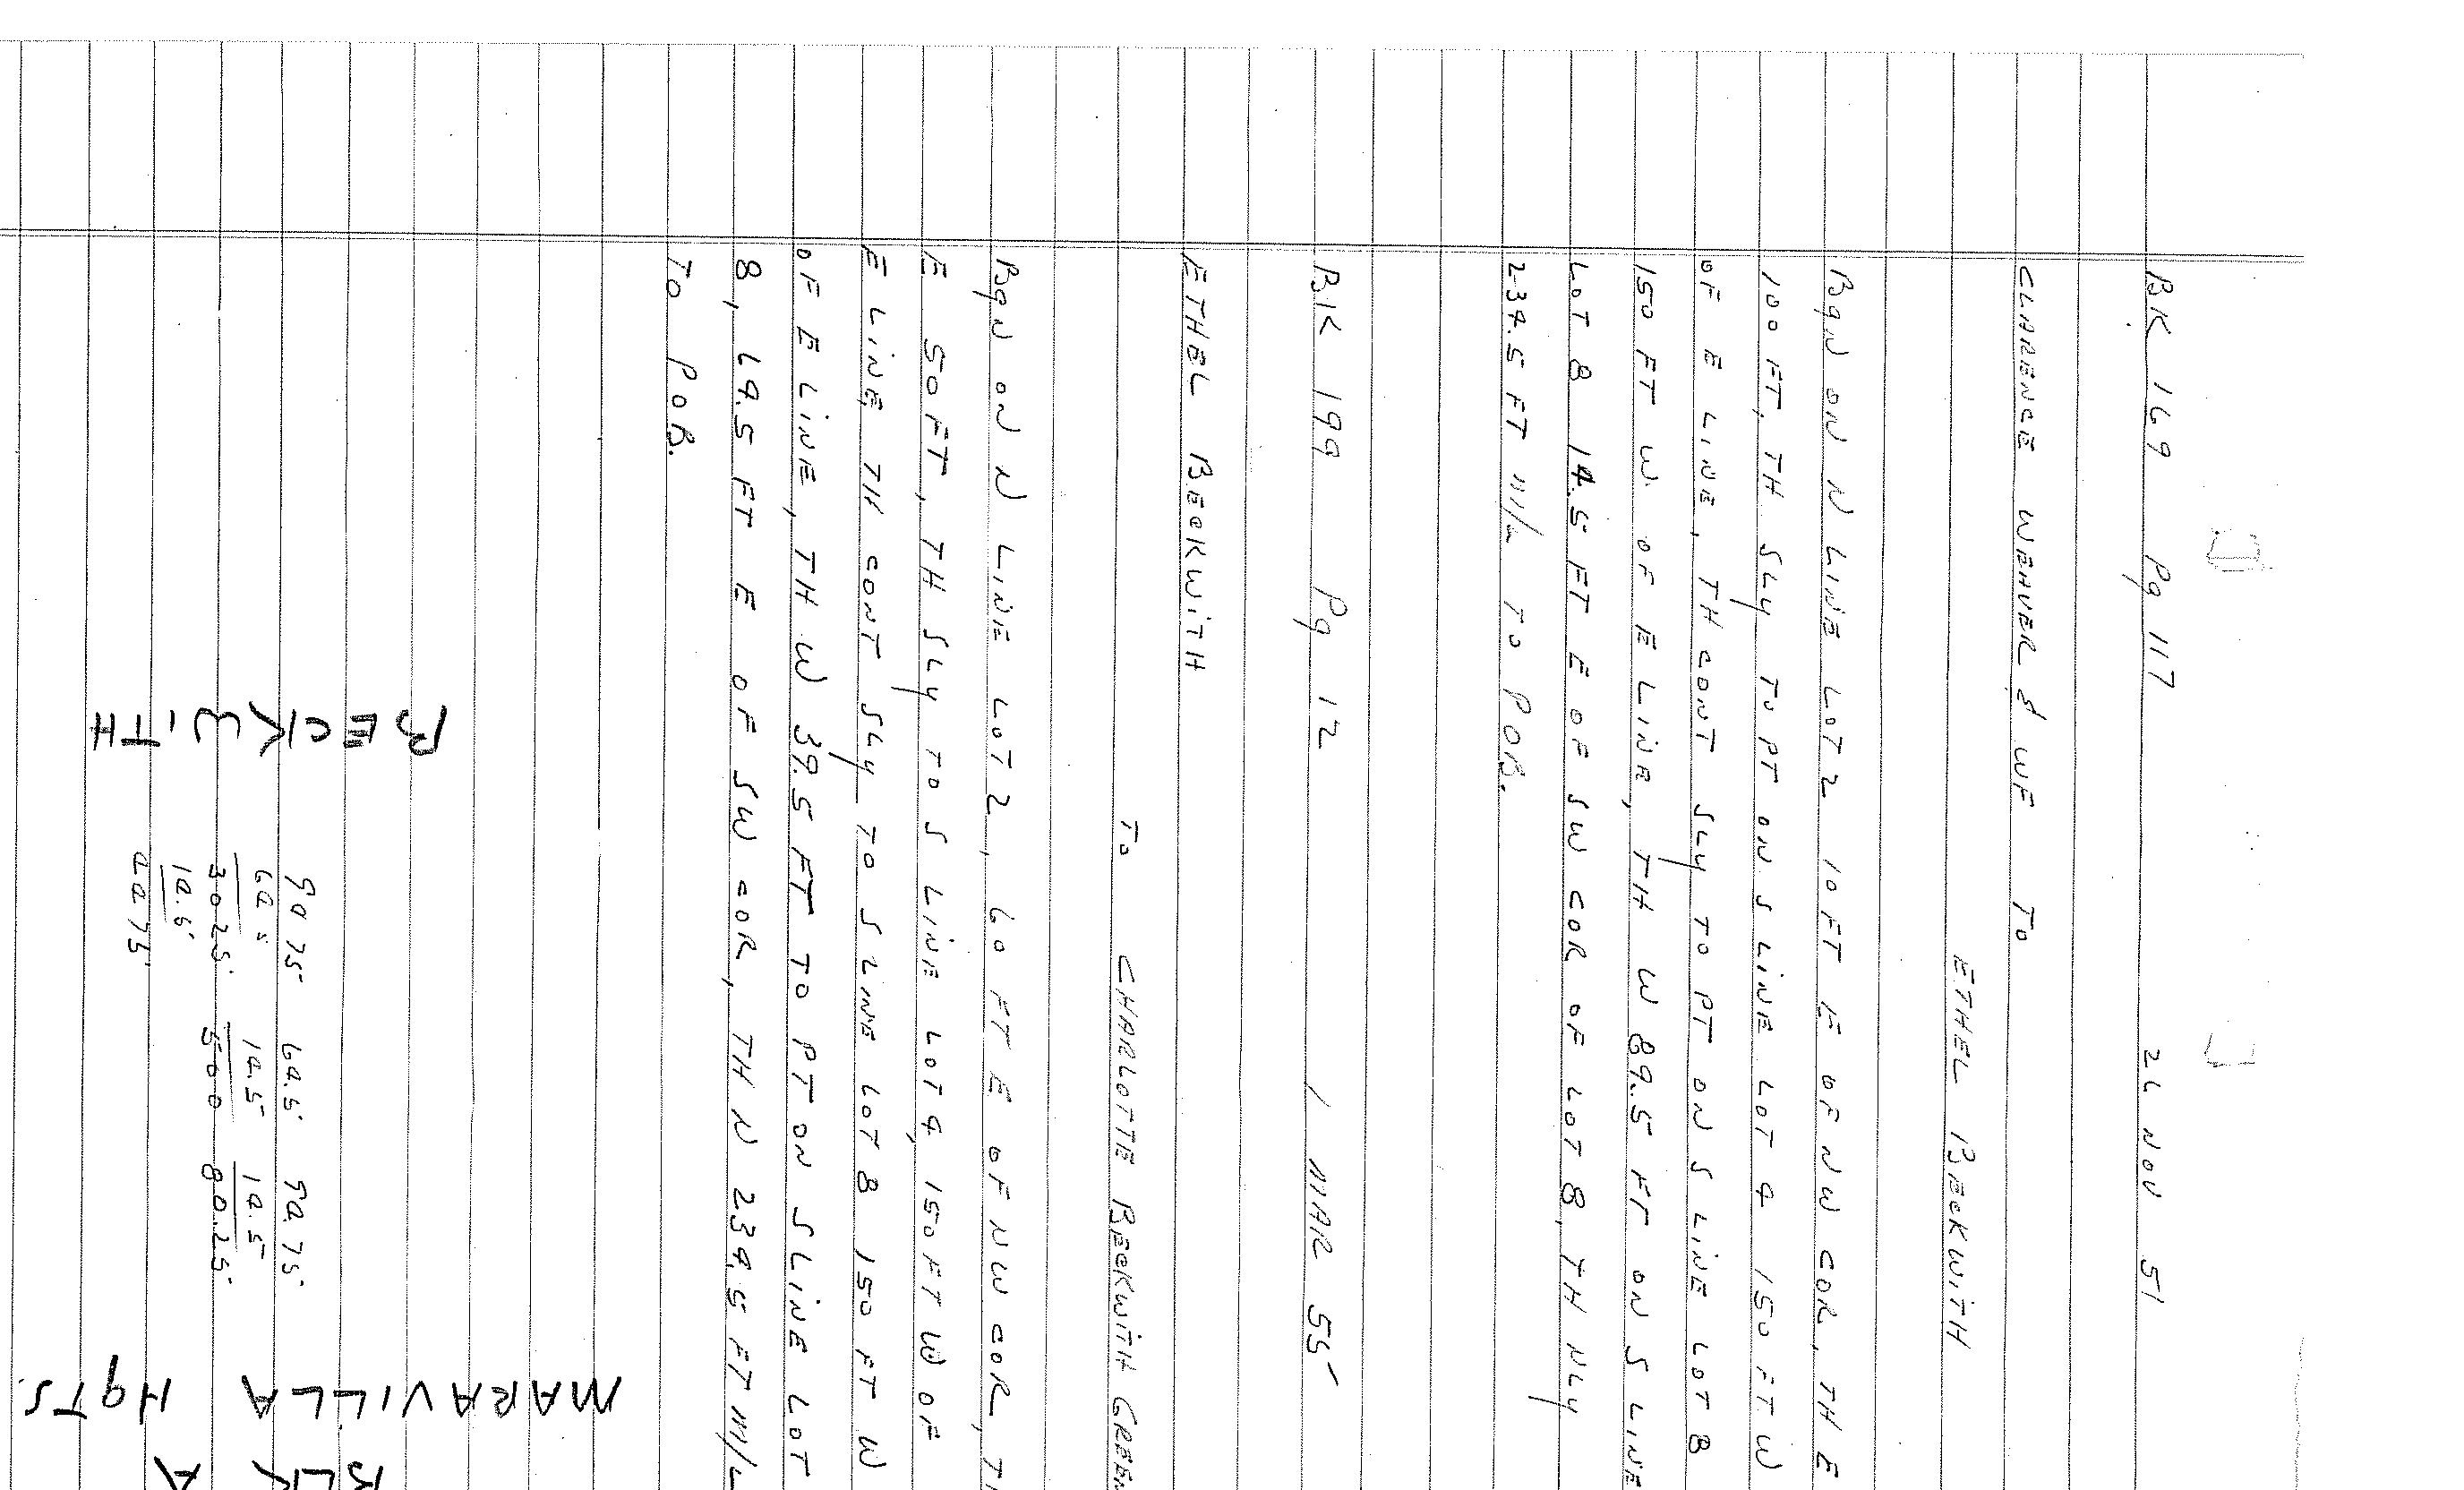 BK 169 Pg 117 26 NOV 51
CLARENCE WEHUER & WF TO
ETHEL BECKWITH
Bgn ON N LINE LOT 2 10 FT E OF NW COR, TH E
100 FT, TH SLy TO PT ON S LINE LOT 4 150 FT W
OF E LINE, TH CONT SLy TO PT ON S LINE LOT 8
150 FT W OF E LINE, TH W 89.5 FT ON S LINE
LOT 8 14.5 FT E OF SW COR OF LOT 8, TH NLy
234.5 FT M/L TO POB.
BK 199 Pg 12 1 MAR 55
ETHEL BECKWITH
TO CHARLOTTE BECKWITH GREEN
Bgn ON N LINE LOT 2, 60 FT E OF NW COR, T
E 50 FT, TH SLy TO S LINE LOT 4, 150 FT W OF
E LINE TH CONT SLy TO S LINE LOT 8 150 FT W
OF E LINE, TH W 39.5 FT TO PT ON S LINE LOT
8, 64.5 FT E OF SW COR, TH N 234.5 FT M/L
TO POB.
94 75 64.5 94.75
64 5 14.5 14.5
30 25 50 0 80.25
14.5
44 75
BECKWITH
MARAVILLA HgTS.
BLK A